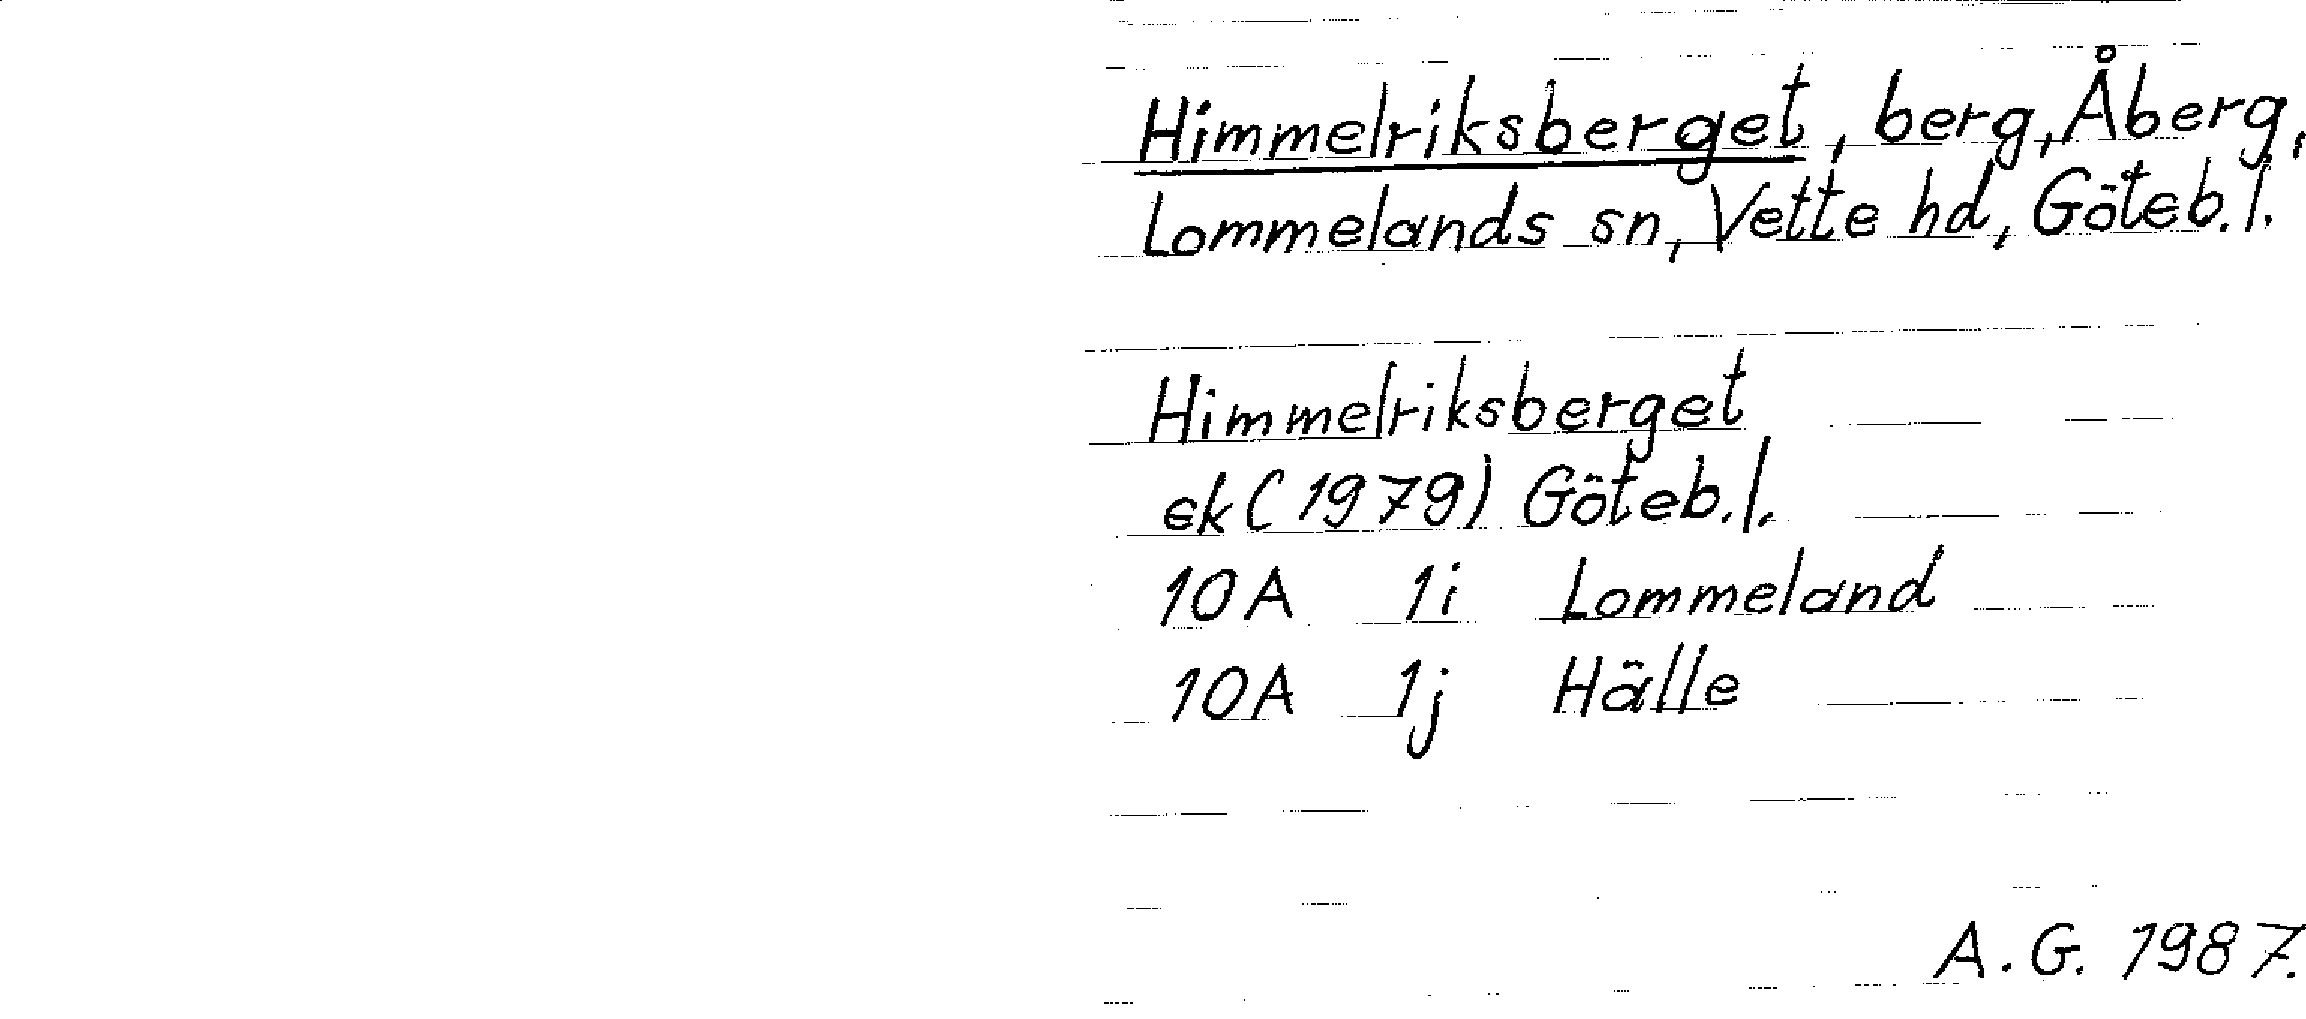 Himmelriksberget, berg, Åberg,
Lommelands sn, Vette hd, Göteb. l.
Himmelriksberget
ek (1979) Göteb. l.
10A 1i Lommeland
10A 1j Hälle
A. G. 1987.